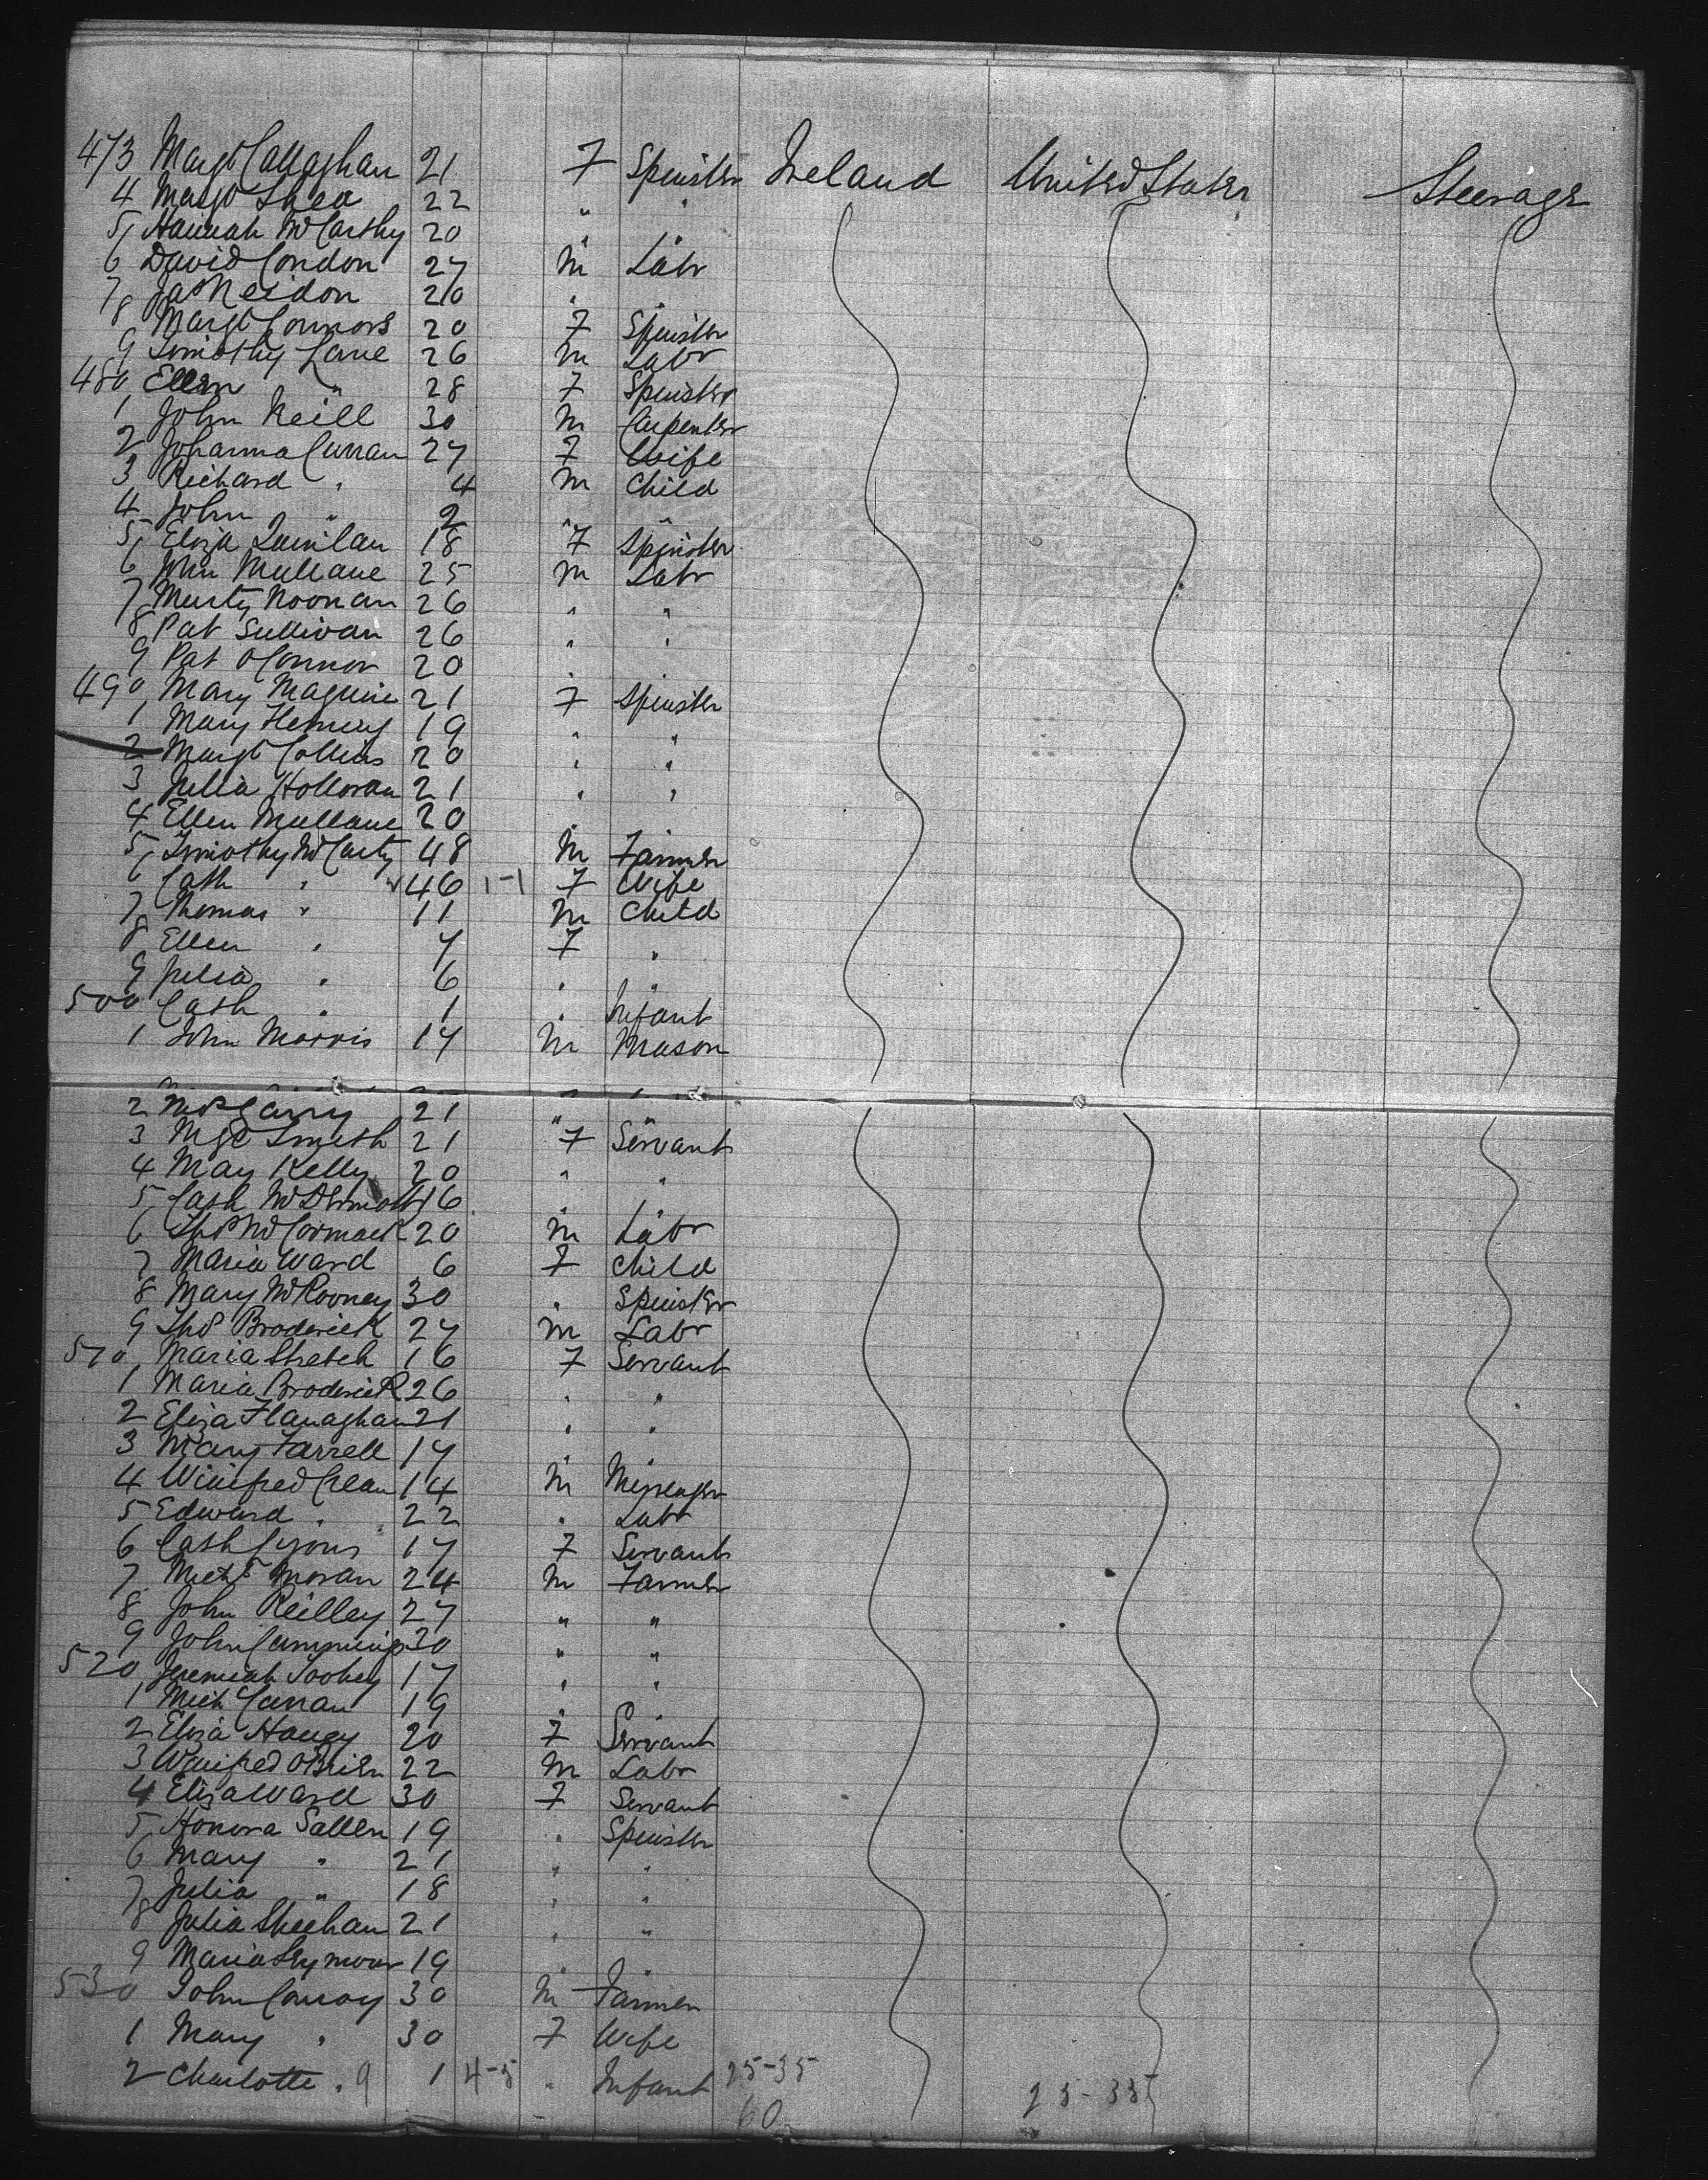 473 Margt Callaghan 21 F Spinster Ireland United States Steerage
4 Margt Shea 22 " "
5 Hannah McCarthy 20 " "
6 David Condon 27 M Labr
7 Jas Neidon 20 " "
8 Margt Connors 20 F Spinster
9 Timothy Lane 26 M Labr
480 Ellen " 28 F Spinster
1 John Neill 30 M Carpenter
2 Johanna Curran 27 F Wife
3 Richard " 4 M Child
4 John " 2 " "
5 Eliza Quinlan 18 F Spinster
6 John Mullane 25 M Labr
7 Murty Noonan 26 " "
8 Pat Sullivan 26 " "
9 Pat O'Connor 20 " "
490 Mary Maguire 21 F Spinster
1 Mary Fleming 19 " "
2 Margt Collins 20 " "
3 Julia Holloran 21 " "
4 Ellen Mullane 20 " "
5 Timothy McCarty 48 M Farmer
6 Cath " 46 1-1 F Wife
7 Thomas " 11 M Child
8 Ellen " 7 F "
9 Julia " 6 " "
500 Cath " 1 " Infant
1 John Morris 17 M Mason
2 Garry 21 " "
3 Mgt Smith 21 F Servant
4 May Kelly 20 " "
5 Cath McDermott 16 " "
6 Thos McCormack 20 M Labr
7 Maria Ward 6 F Child
8 Mary McRooney 30 " Spinster
9 Thos Broderick 27 M Labr
510 Maria Stretch 16 F Servant
1 Maria Broderick 26 " "
2 Eliza Flanaghan 21 " "
3 Mary Farrell 17 " "
4 Winifred Crean 14 M Messenger
5 Edward " 22 " Labr
6 Cath Lyons 17 F Servant
7 Michl Moran 24 M Farmer
8 John Reilley 27 " "
9 John Cummings 30 " "
520 Jeremiah Toohey 17 " "
1 Mich Curran 19 " "
2 Eliza 20 F Servant
3 Winifred O'Brien 22 M Labr
4 Eliza Ward 30 F Servant
5 Honora Sallen 19 " Spinster
6 Mary " 21 " "
7 Julia " 18 " "
8 Julia Sheehan 21 " "
9 Maria Seymour 19 " "
530 John Conroy 30 M Farmer
1 Mary " 30 F Wife
2 Charlotte " 9 1 4-5 " Infant 25-35 25-35
60